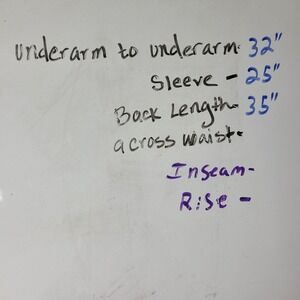 underarm to underarm- 32"
Sleeve - 25"
Back Length- 35"
across waist-
Inseam-
Rise -